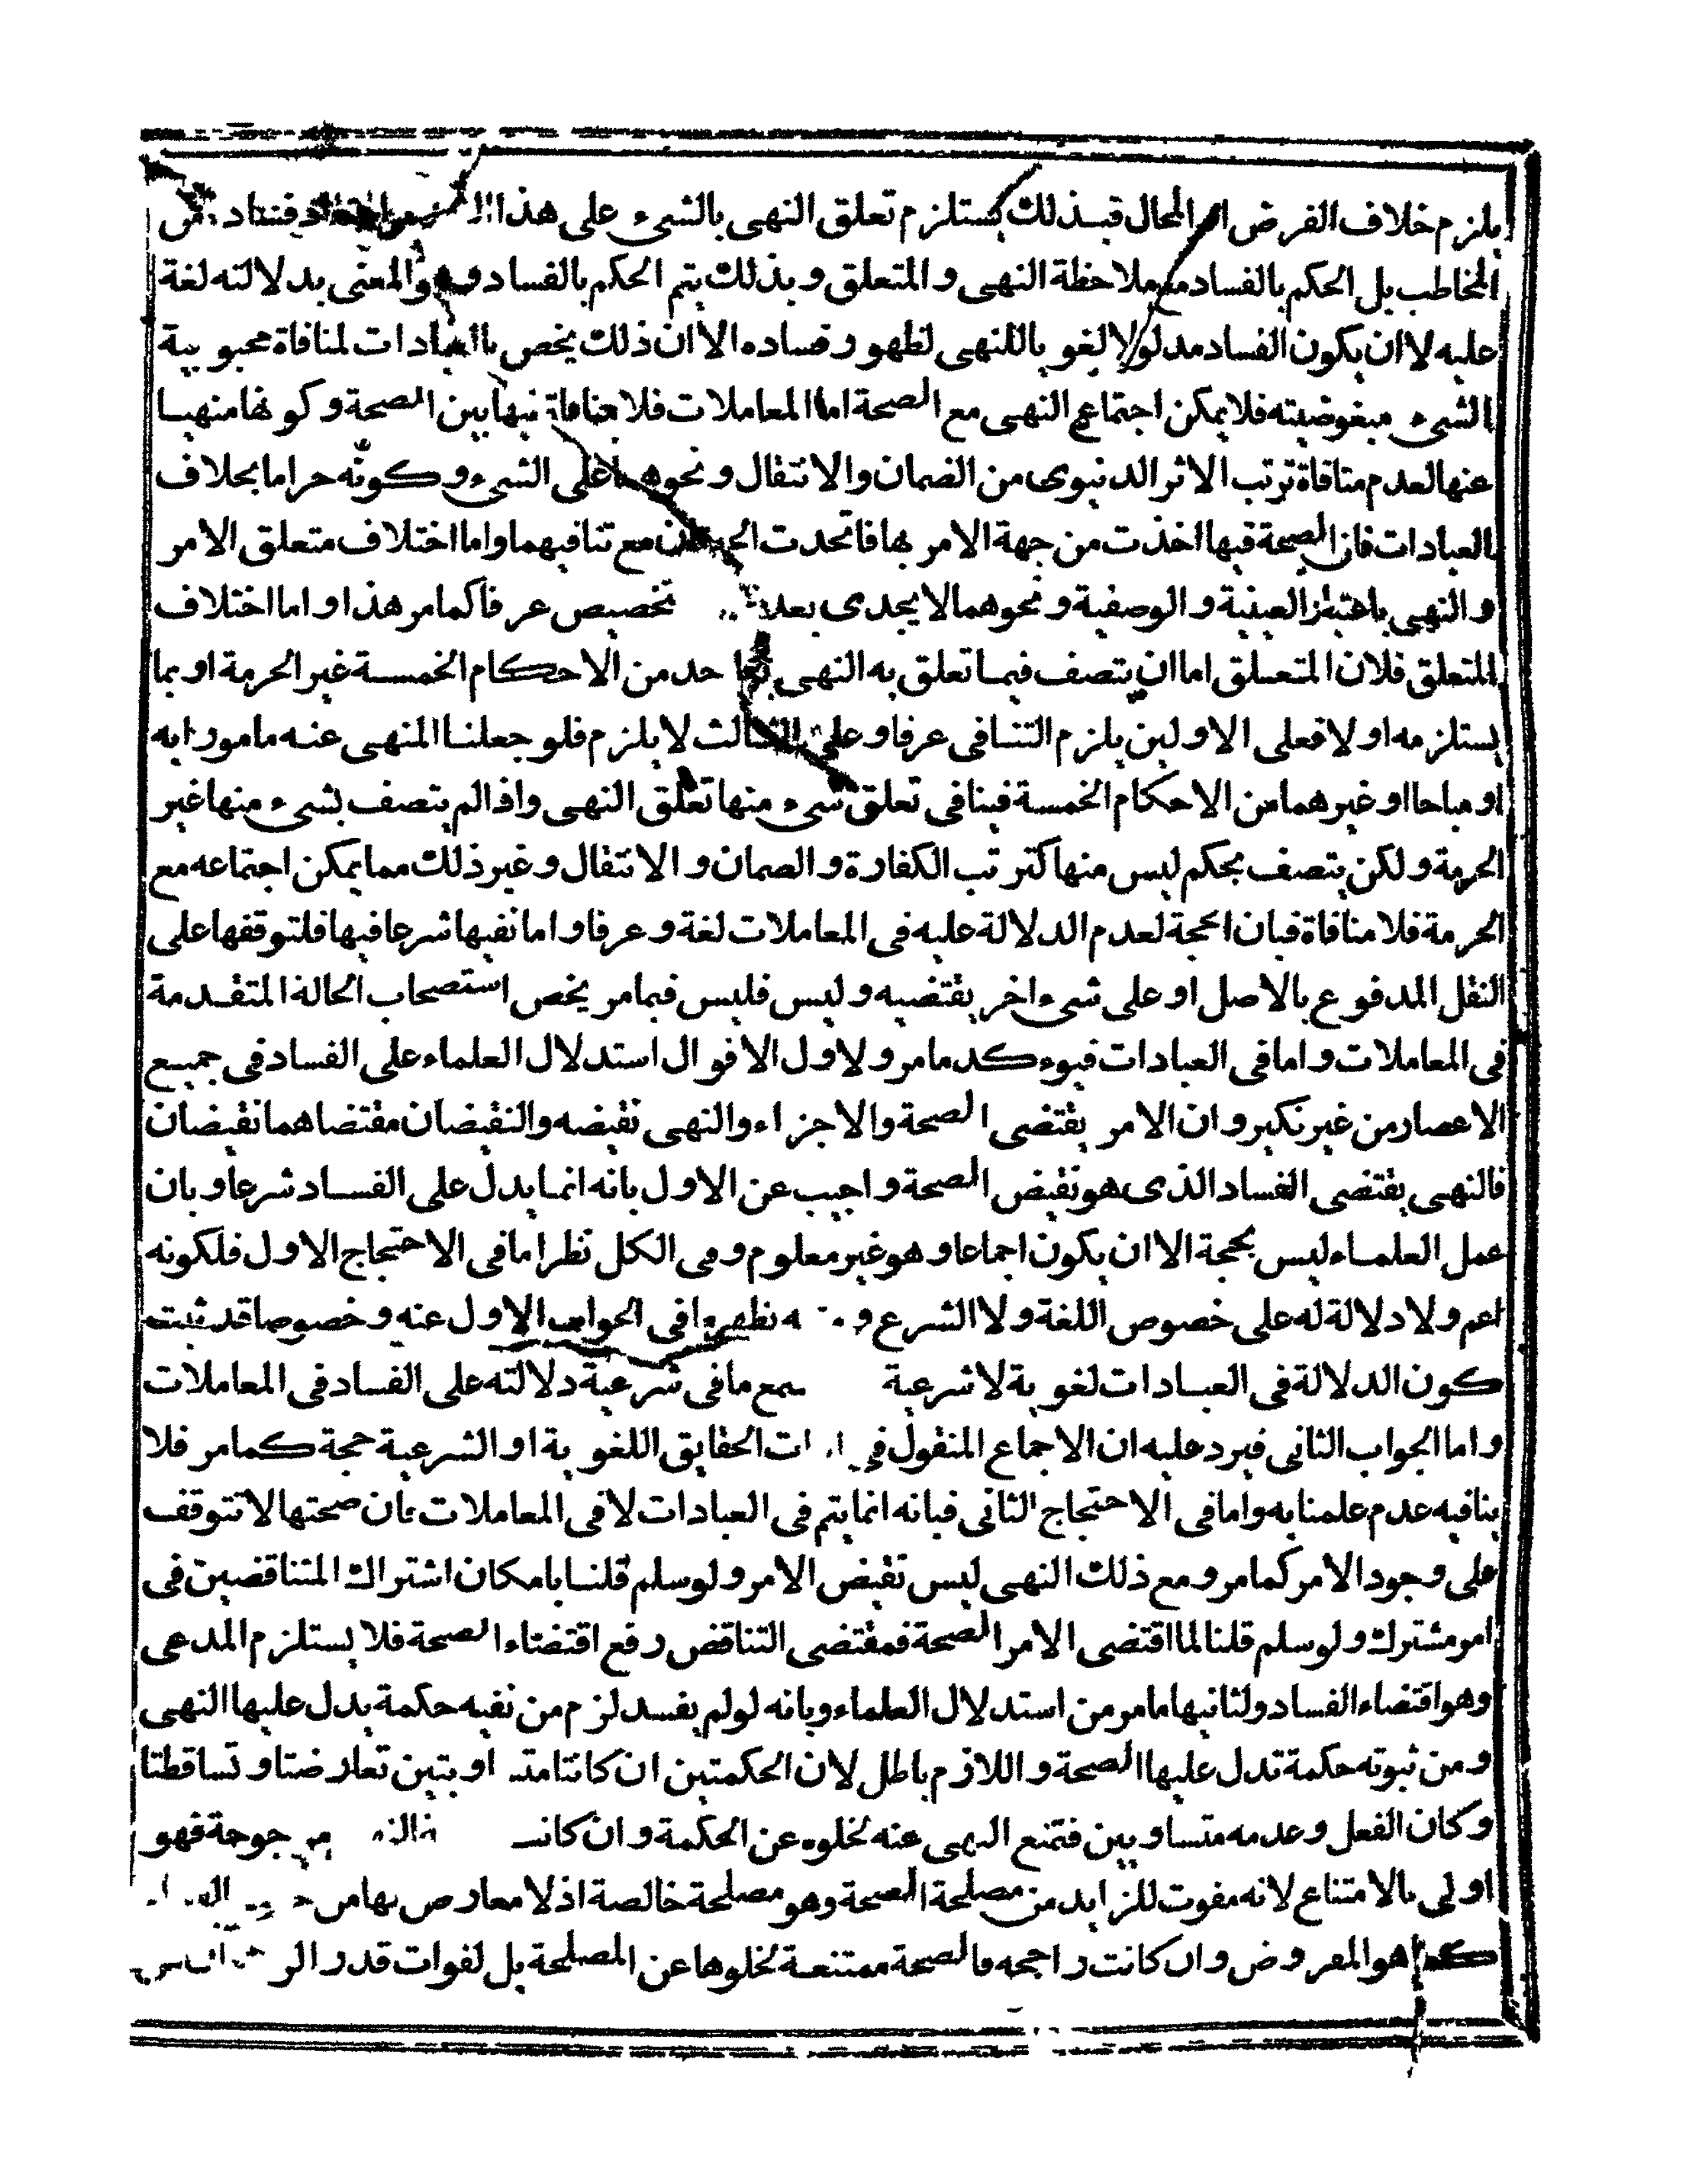 يلزم خلاف الفرض او المحال فبذلك يستلزم تعلق النهى بالشىء على هذا
المخاطب بل الحكم بالفساد مع ملاحظة النهى والمتعلق وبذلك يتم الحكم بالفساد والمعنى بدلالته لغة
عليه لا ان يكون الفساد مدلولا لغويا للنهى لظهور فساده الا ان ذلك يخص بالعبادات لمنافاة محبوبية
الشىء مبغوضيته فلا يمكن اجتماع النهى مع الصحة اما المعاملات فلا منافاة فيها بين الصحة وكونها منهيا
عنها لعدم منافاة ترتب الاثر الدنيوى من الضمان والانتقال ونحوهما على الشىء وكونه حراما بخلاف
العبادات فان الصحة فيها اخذت من جهة الامر بها فاتحدت الجهتان مع تنافيهما واما اختلاف متعلق الامر
والنهى باعتبار العينية والوصفية ونحوهما لا يجدى بعد تخصيص عرفا كما مر هذا واما اختلاف
المتعلق فلان المتعلق اما ان يتصف فيما تعلق به النهى بواحد من الاحكام الخمسة غير الحرمة او بما
يستلزمه او لا فعلى الاولين يلزم التنافى عرفا وعلى الثالث لا يلزم فلو جعلنا المنهى عنه مامورا به
او مباحا او غيرهما من الاحكام الخمسة فينافى تعلق شىء منها تعلق النهى واذا لم يتصف بشىء منها غير
الحرمة ولكن يتصف بحكم ليس منها كترتب الكفارة والضمان والانتقال وغير ذلك مما يمكن اجتماعه مع
الحرمة فلا منافاة فبان الحجة لعدم الدلالة عليه فى المعاملات لغة وعرفا واما نفيها شرعا فيها فلتوقفها على
النقل المدفوع بالاصل او على شىء اخر يقتضيه وليس فليس فيما مر يخص استصحاب الحالة المتقدمة
فى المعاملات واما فى العبادات فيوءكد ما مر ولاول الاقوال استدلال العلماء على الفساد فى جميع
الاعصار من غير نكير وان الامر يقتضى الصحة والاجزاء والنهى نقيضه والنقيضان مقتضاهما نقيضان
فالنهى يقتضى الفساد الذى هو نقيض الصحة واجيب عن الاول بانه انما يدل على الفساد شرعا وبان
عمل العلماء ليس بحجة الا ان يكون اجماعا وهو غير معلوم وفى الكل نظر اما فى الاحتجاج الاول فلكونه
اعم ولا دلالة له على خصوص اللغة ولا الشرع و نظهر ما فى الجواب الاول عنه وخصوصا قد ثبت
كون الدلالة فى العبادات لغوية لا شرعية مع ما فى شرعية دلالته على الفساد فى المعاملات
واما الجواب الثانى فيرد عليه ان الاجماع المنقول فى الحقايق اللغوية او الشرعية حجة كما مر فلا
ينافيه عدم علمنا به واما فى الاحتجاج الثانى فبانه انما يتم فى العبادات لا فى المعاملات فان صحتها لا تتوقف
على وجود الامر كما مر ومع ذلك النهى ليس نقيض الامر ولو سلم قلنا بامكان اشتراك المتناقضين فى
امر مشترك ولو سلم قلنا لما اقتضى الامر الصحة فمقتضى التناقض رفع اقتضاء الصحة فلا يستلزم المدعى
وهو اقتضاء الفساد ولثانيها ما مر من استدلال العلماء وبانه لو لم يفسد لزم من نفيه حكمة يدل عليها النهى
ومن ثبوته حكمة تدل عليها الصحة واللازم باطل لان الحكمتين ان كانتا متساويتين تعارضتا وتساقطتا
وكان الفعل وعدمه متساويين فتمنع النهى عنه لخلوه عن الحكمة وان كانت مرجوحة فهو
اولى بالامتناع لانه مفوت للزايد من مصلحة الصحة وهو مصلحة خالصة اذ لا معارض بها من
كما هو المفروض وان كانت راجحه فالصحة ممتنعة لخلوها عن المصلحة بل لفوات قدر